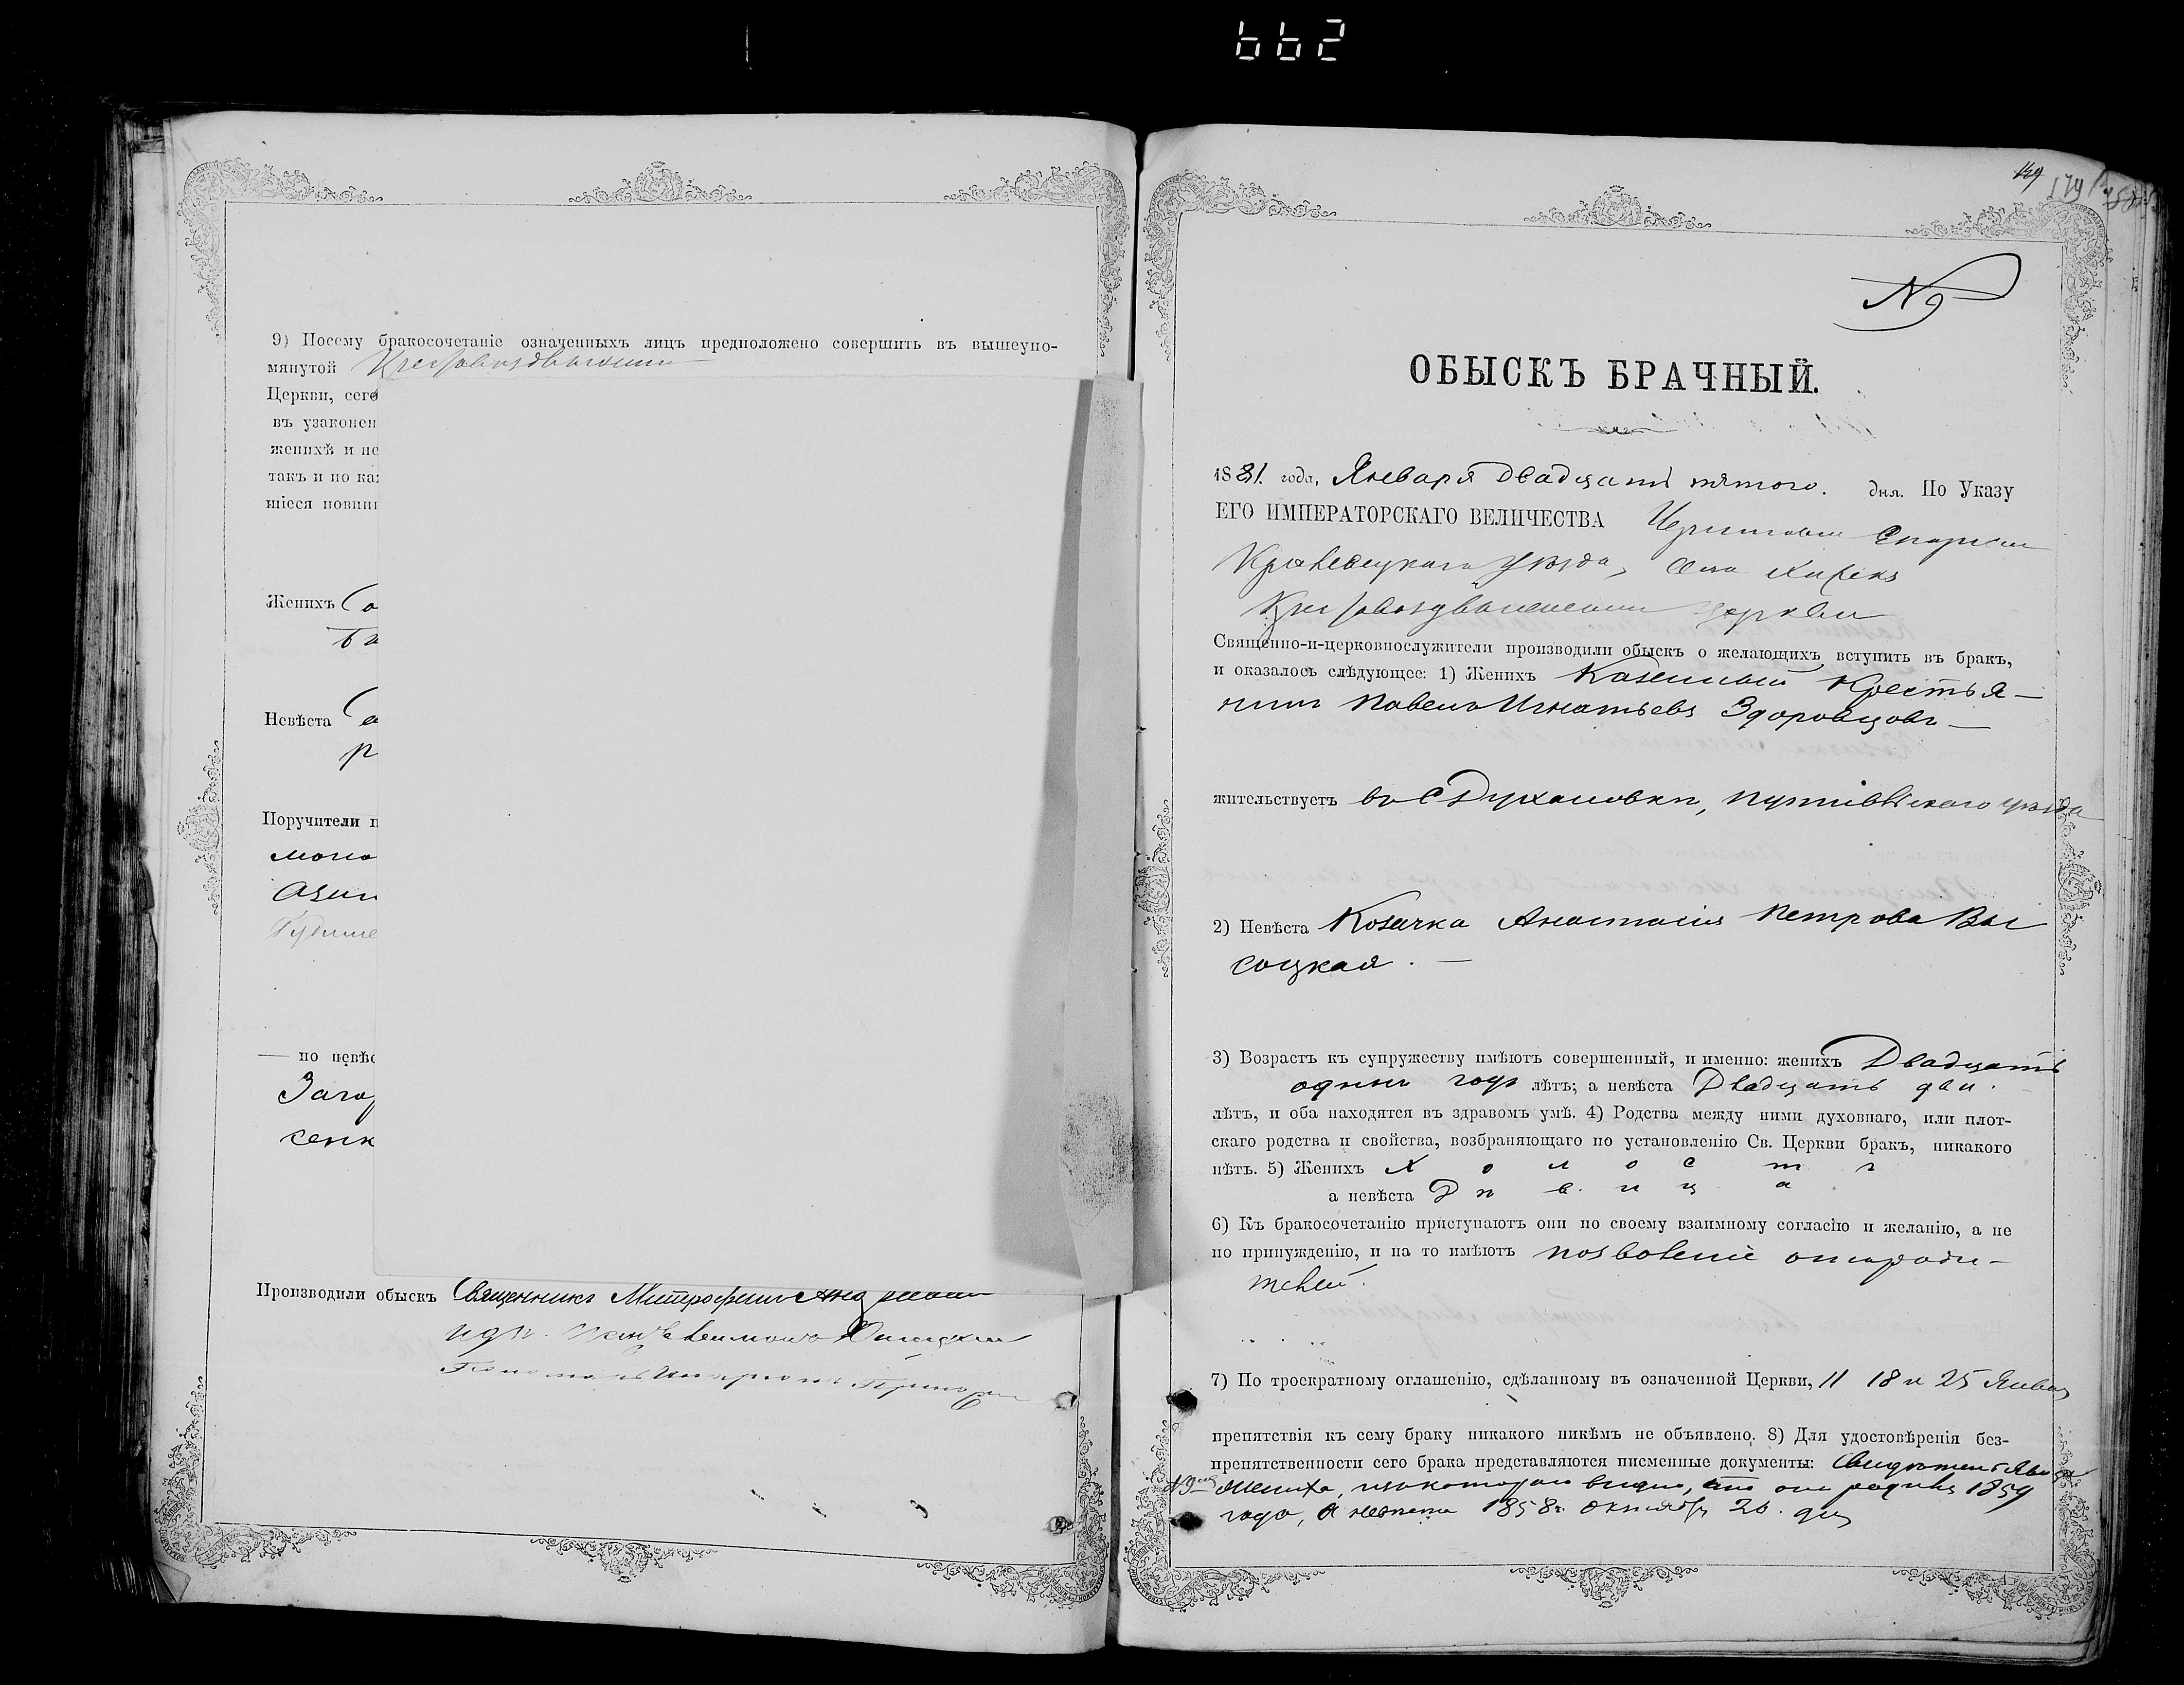 662
9) Посему бракосочетаніе означенныхъ лицъ предположено совершить въ вышеупо-
мянутой Крестовоздвиженской
Церкви, сего
въ узаконен
женихѣ и не
такъ и по ка
шіеся повин
Женихъ
Невѣста
Поручители п
— по невѣс
Загор
сенк
Производили обыскъ Священникъ Митрофанъ
179
№
ОБЫСКЪ БРАЧНЫЙ.
1881. года, Января двадцать пятого. дня. По Указу
ЕГО ИМПЕРАТОРСКАГО ВЕЛИЧЕСТВА Черниговской Епархіи
Кролевецкаго уѣзда, села
Крестовоздвиженской церкви
Священно-и-церковнослужители производили обыскъ о желающихъ вступить въ бракъ,
и оказалось слѣдующее: 1) Женихъ Казенный Крестья-
нинъ Павелъ Игнатьевъ Здоровцовъ
жительствуетъ въ С Духановкѣ, Путивльскаго уѣзда
2) Невѣста Козачка Анастасія Петрова Вы
соцкая. —
3) Возрастъ къ супружеству имѣютъ совершенный, и именно: женихъ Двадцать
одинъ годъ лѣтъ; а невѣста Двадцать два.
лѣтъ, и оба находятся въ здравомъ умѣ. 4) Родства между ними духовнаго, или плот-
скаго родства и свойства, возбраняющаго по установленію Св. Церкви бракъ, никакого
нѣтъ. 5) Женихъ Холостъ
а невѣста Дѣвица
6) Къ бракосочетанію приступаютъ они по своему взаимному согласію и желанію, а не
по принужденію, и на то имѣютъ позволеніе отъ роди-
телей.
7) По троекратному оглашенію, сдѣланному въ означенной Церкви, 11 18 и 25 Января
препятствія къ сему браку никакого никѣмъ не объявлено. 8) Для удостовѣренія без-
препятственности сего брака представляются писменные документы:
жениха, изъ котораго видно, что онъ родился 1859
года, а невѣста 1858 г. октября 26. дня